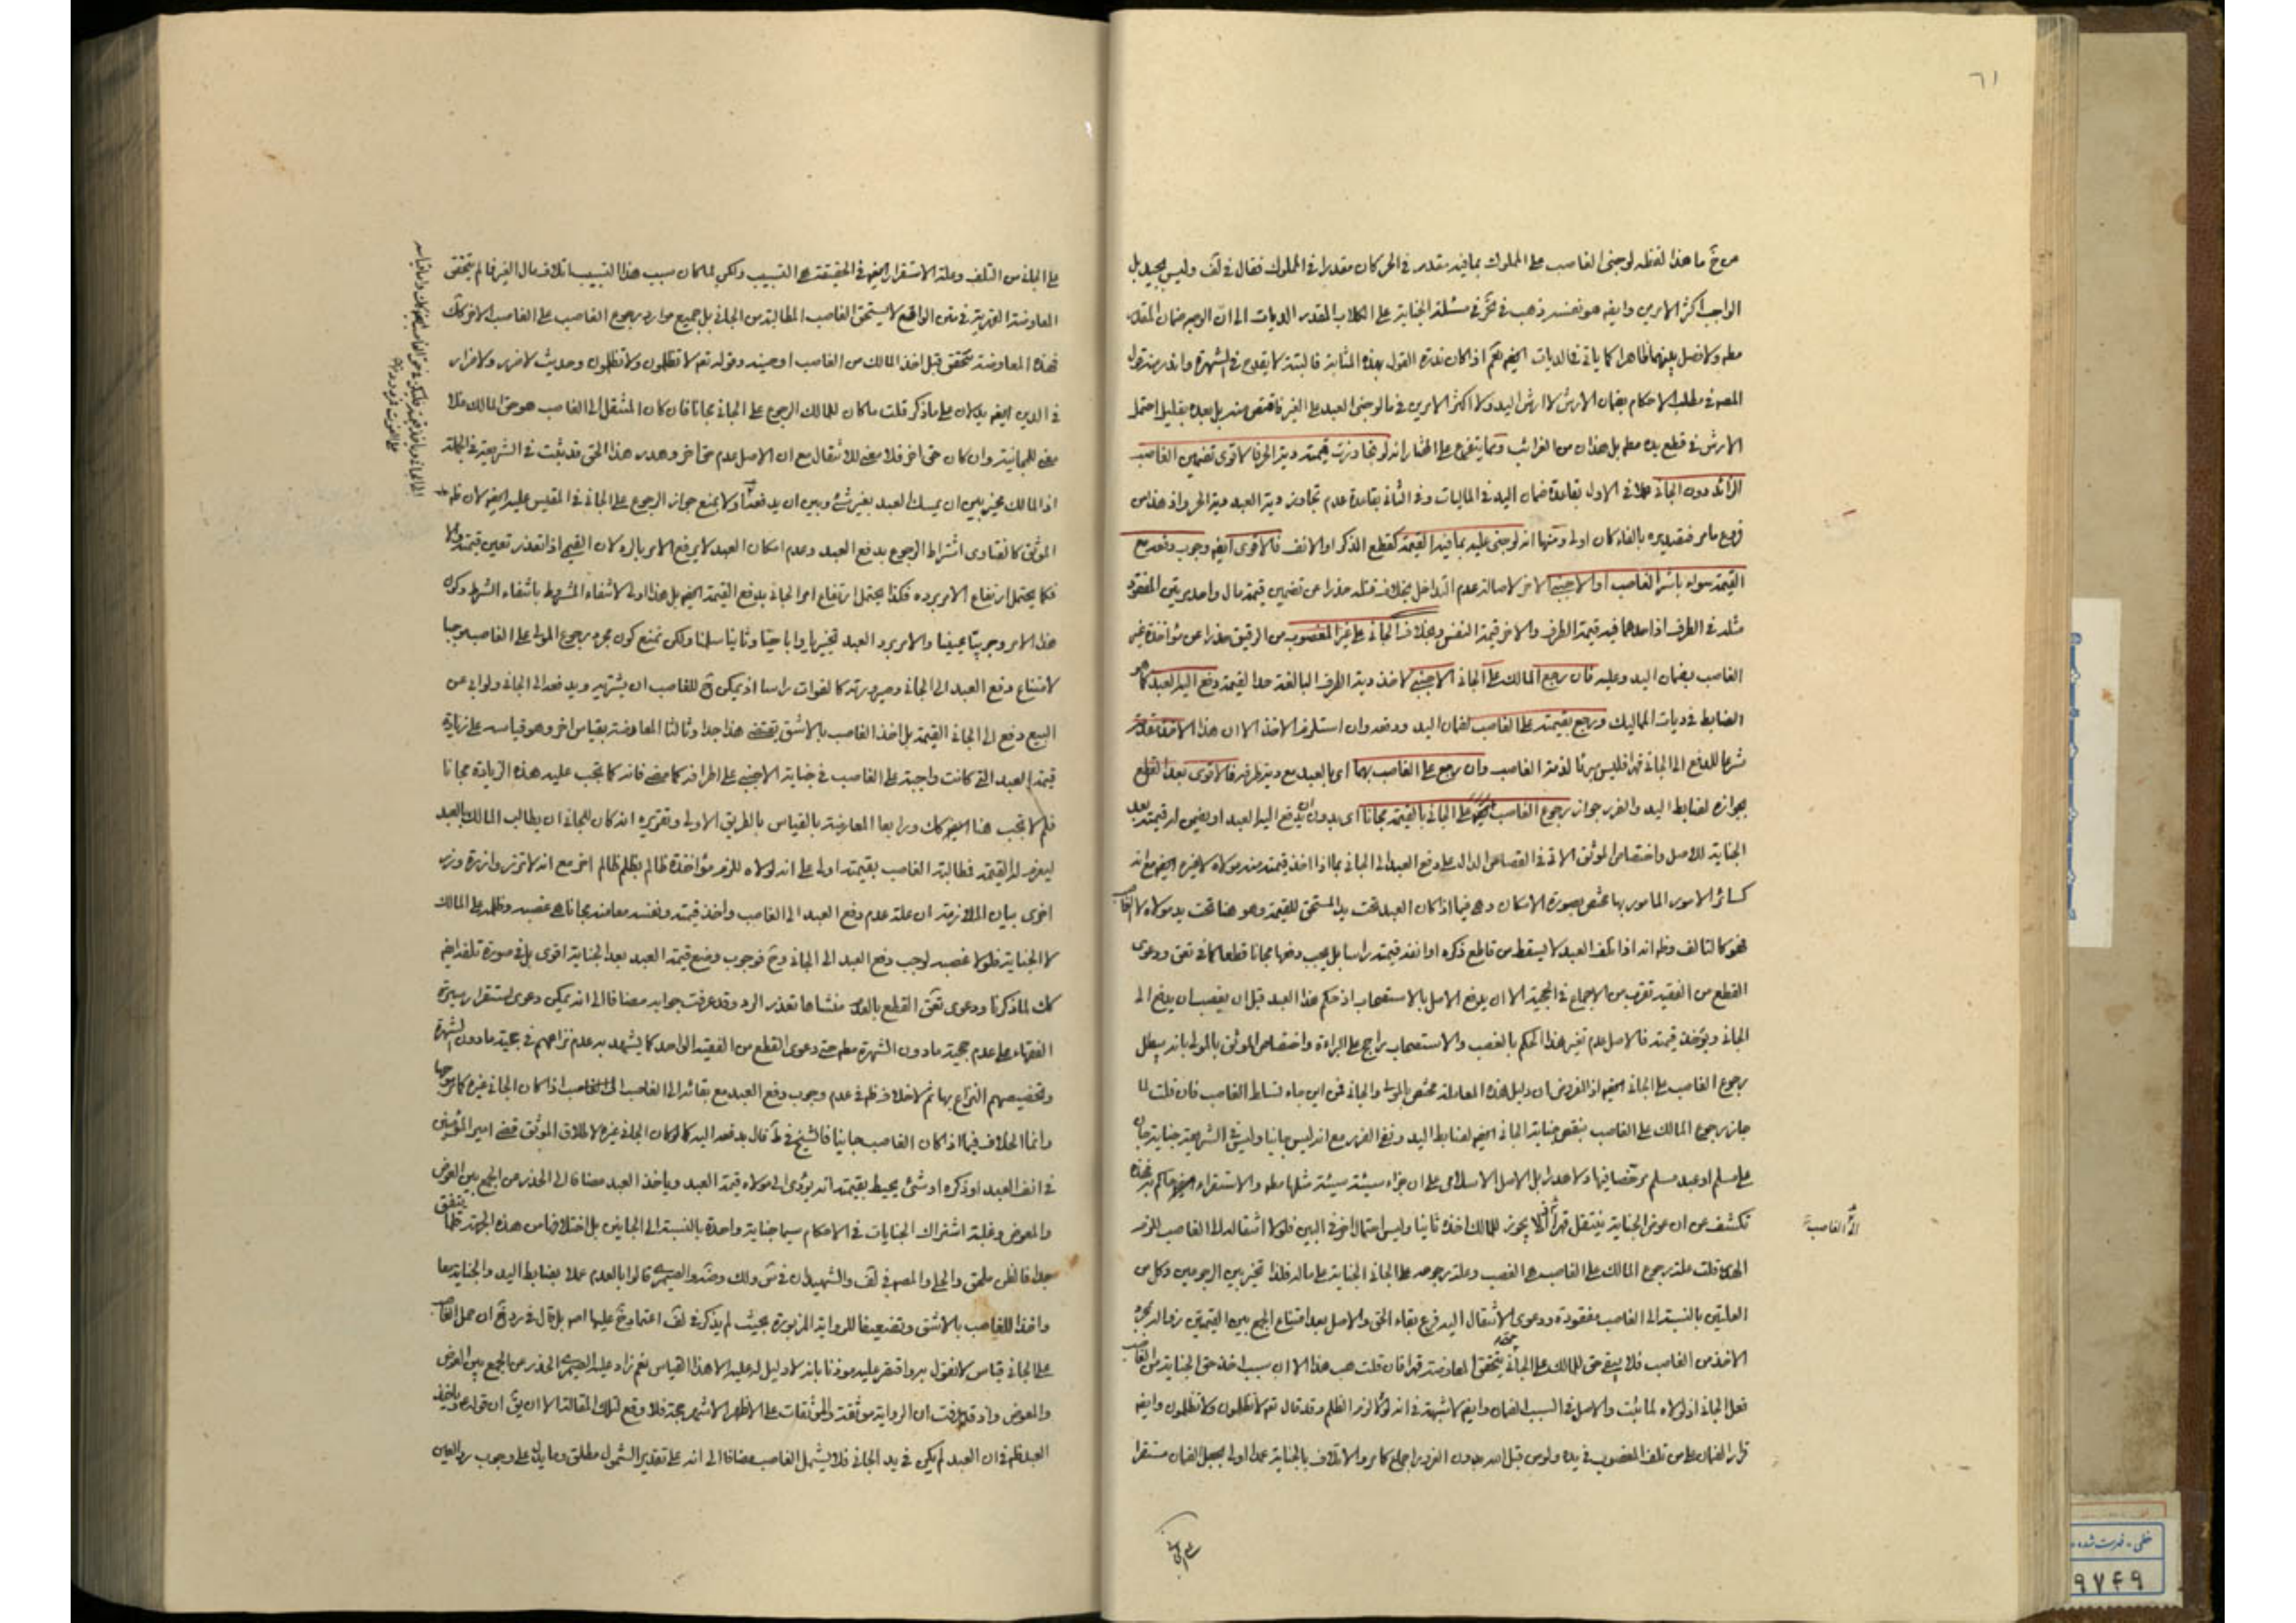 ٦١
من خ ما هذا لفظه لو جنى الغاصب على المملوك بما فيه مقدر في الحر كان مقدرا في المملوك فقال في لف وليس بجيد بل
الواجب اكثر الامرين وايضه هو نفسه ذهب في مسئلة الجناية على الكلاب المقدر الديات الى ان الوجه ضمان المقدر
مطه ولا فصل بينهما ظاهرا كما ياتي في الديات اذا كان ندرة القول بهذه المثابة فالبتة لا يقدح في الشهرة
المصه في مطلب الاحكام بضمان الارش لا ارش اليد ولا اكثر الامرين في ما لو جنى العبد على الغير فاقتص منه بل بعده بقليل احتمل
الارش في قطع يده مطه بل هذا من الغرائب ومما يتفرع على المختار انه لو تجاوزت قيمته دية الحر فالاقوى تضمين الغاصب
الزائد دون الجاني عملا في الاول بقاعدة ضمان اليد في الماليات وفي الثاني بقاعدة عدم تجاوز دية العبد دية الحر واذ هذا من
فروع ما مر فتقديره بالفاء كان اولى ومنها انه لو جنى عليه بما فيه القيمة كقطع الذكر او الانف فالاقوى ايضه وجوب دفعه مع
القيمة سواء باشر الغاصب او الاجنبي لاصالة عدم التداخل بخلاف قتله حذرا عن تضمين قيمة مال واحد مرتين
مثله في الطرف اذ احدهما فيه قيمة الطرف والاخر قيمة النفس وبخلاف الجاني على غير المغصوب من الرقيق حذرا عن مؤاخذة غير
الغاصب بضمان اليد وعليه فان رجع المالك على الجاني الاجنبي لاخذ دية الطرف البالغة حد القيمة دفع اليه العبد كما هو
الضابط في ديات المماليك ورجع بقيمته على الغاصب لضمان اليد ودفعه وان استلزمه الاخذ الا ان هذا الاخذ
شرعا للدفع الى الجاني قهرا فليس مبرئا لذمة الغاصب وان رجع على الغاصب بهما اى بالعبد مع دية طرفه فالاقوى بعد القطع
بجوازه لضابط اليد والضرر جواز رجوع الغاصب على الجاني بالقيمة مجانا اى بدون ان يدفع اليه العبد او يضمن له قيمته بعد
الجناية للاصل واختصاص الموثق الاتي في القصاص الدال على دفع العبد الى الجاني بما اذا اخذ قيمته منه مولاه
كسائر الامور المامور بها مختص بصورة الامكان وهي فيما اذا كان العبد تحت يد المستحق للقيمة وهو هنا تحت يد مولاه لا الغاصب
فهو كالتالف وظه انه اذا تلف العبد لا يسقط من قاطع ذكره او انفه قيمته راسا بل يجب دفعها مجانا قطعا كما في تعق ودعوى
القطع من الفقيه تقرب من الاجماع في الحجية الا ان يدفع الاصل بالاستصحاب اذ حكم هذا العبد قبل ان يغصب ان يدفع الى
الجاني ويؤخذ قيمته فالاصل عدم تغير هذا الحكم بالغصب والاستصحاب راجح على البراءة واختصاص الموثق بالمولى بانه يبطل
رجوع الغاصب على الجاني ايضه اذ الفرض ان دليل هذه المعاملة مختص بالمولى والجاني فمن اين جاء تسلط الغاصب فان قلت لما
جاز رجوع المالك على الغاصب بنقص جناية الجاني ايضه لضابط اليد ونفى الضرر مع انه ليس جانيا وليس في الشريعة جناية جان
على مسلم او عبد مسلم مرخصا فيها ولا هدرا بل الاصل الاسلامى على ان جزاء سيئة سيئة مثلها مطه والاستقراء ايضه حاكم به فهذه
تكشف عن ان عوض الجناية ينتقل قهرا لا يجوز للمالك اخذه ثانيا وليس احتمال اخر في البين فلولا انتقاله الى الغاصب للزم
الهدر قلت علة رجوع المالك على الغاصب هي الغصب وعلة رجوعه على الجاني الجناية على ماله فلذا تخير بين الرجوعين وكل من
العلتين بالنسبة الى الغاصب مفقودة ودعوى الانتقال اليه فرع بقاء الحق والاصل بعد امتناع الجمع بين القيمتين زواله بمجرد
الاخذ من الغاصب فلا يبقى حق للمالك على الجاني حتى يتحقق المعاوضة قهرا فان قلت هب هذا الا ان سبب اخذ حق الجناية من الغاصب
فعل الجاني اذ لولاه لما ثبت والاصل في السبب الضمان وايضه لا شبهة في انه لولا لزم الظلم وقد قال تعه لا تظلمون ولا تظلمون وايضه
قرار الضمان على من تلف المغصوب في يده ولو من قبل الله بدون الغرور اجماع كما مر والاتلاف بالجناية عمدا اولى بجعل الضمان مستقرا
الى الغاصب
على الجاني
على الجاني من التلف وعلة الاستقرار ايضه في الحقيقة هي التسبيب ولكن لما كان سبب هذا التسبيب اتلاف مال الغير فما لم يتحقق
المعاوضة القهرية في متن الواقع لا يستحق الغاصب المطالبة من الجاني بل جميع موارد رجوع الغاصب على الغاصب الاخر كك
فهذه المعاوضة تتحقق قبل اخذ المالك من الغاصب او حينه وقوله تعه لا تظلمون ولا تظلمون وحديث لا ضرر ولا ضرار
في الدين ايضه يدلان على ما ذكر قلت ما كان للمالك الرجوع على الجاني مجانا فان كان المنتقل الى الغاصب هو حق المالك فلا
معنى للمجانية وان كان حق اخر فلا معنى للانتقال مع ان الاصل عدم حق اخر وهدر هذا الحق قد يثبت في الشريعة في الجملة
اذ المالك مخير بين ان يمسك العبد بغير شئ وبين ان يدفعه ولا يمنع جواز الرجوع على الجاني في المقيس عليه ايضه لان ظه
الموثق كالفتاوى اشتراط الرجوع بدفع العبد وعدم امكان العبد لا يرفع الامر بالرد لان القيمي اذا تعذر تعين قيمته
فكما يحتمل ارتفاع الامر برده فكذا يحتمل ارتفاع امر الجاني بدفع القيمة ايضه بل هذا اولى لانتفاء المشروط بانتفاء الشرط وكون
هذا الامر وجوبيا عينيا والامر برد العبد تخييريا واباحيا وثانيا سلمنا ولكن نمنع كون مجرد رجوع المولى على الغاصب موجبا
لامتناع دفع العبد الى الجاني وصيرورته كالفوات راسا اذ يمكن ح للغاصب ان يشتريه ويدفعه الى الجاني ولو ابى عن
البيع دفع الى الجاني القيمة بل اخذ الغاصب بالاشق يقتضى هذا جدا وثالثا المعارضة بقياس اخر وهو قياسه على زيادة
قيمة العبد التى كانت واجبة على الغاصب في جناية الاجنبى على اطرافه كما مضى فانه كما تجب عليه هذه الزيادة مجانا
فلم لا تجب هنا ايضه كك ورابعا المعارضة بالقياس بالطريق الاولى وتقريره انه كان للجاني ان يطالب المالك بالعبد
ليغرم له القيمة فمطالبة الغاصب بقيمته اولى على انه لولاه للزم مؤاخذة ظالم بظلم ظالم اخر مع انه لا تزر وازرة وزر
اخرى بيان الملازمة ان علة عدم دفع العبد الى الغاصب واخذ قيمته ونفسه معا منه مجانا هي غصبه وظلمه على المالك
لا الجناية فلولا غصبه لوجب دفع العبد الى الجاني وح فوجوب دفع قيمة العبد بعد الجناية اقوى بل في صورة تلفه ايضه
كك لما ذكرنا ودعوى تعق القطع بالعدم منشاها تعذر الرد وقد عرفت جوابه مضافا الى انه يمكن دعوى استقرار سيرة
الفقهاء على عدم حجية ما دون الشهرة مطه حتى دعوى القطع من الفقيه الواحد كما يشهد به عدم نزاعهم في حجية ما دون الشهرة
وتخصيصهم النزاع بها ثم لا خلاف ظه في عدم وجوب دفع العبد مع بقائه الى الغاصب اذا كان الجاني غيره كما مر
وانما الخلاف فيما اذا كان الغاصب جانيا فالشيخ في ط قال بدفعه اليه كما لو كان الجاني غيره لاطلاق الموثق قضى امير المؤمنين
في انف العبد او ذكره او شئ يحيط بقيمته انه يؤدى الى مولاه قيمة العبد وياخذ العبد مضافا الى الحذر من الجمع بين العوض
والمعوض وغلبة اشتراك الجنايات في الاحكام سيما جناية واحدة بالنسبة الى الجانين بل اختلافها من هذه الجهة قلما يتفق
جدا فالظن ملحق والحلى والمصه في لف والشهيدان في س ولك وضه والصيمرى قالوا بالعدم عملا بضابط اليد والجناية معا
واخذا للغاصب بالاشق وتضعيفا للرواية المزبورة بحيث لم يذكر في لف اعتماد خ عليها اصه بل قال في رد خ ان حمل الغاصب
على الجاني قياس لا نقول به واقتصر عليه موذنا بانه لا دليل له عليه الا هذا القياس نعم زاد عليه الصيمرى الحذر من الجمع بين العوض
والمعوض واذ قد عرفت ان الرواية موثقة والموثقات على الاظهر الاشهر حجة فلا وقع لتلك المقالة الا ان يق ان قوله ع وياخذ
العبد ظه في ان العبد لم يكن في يد الجاني فلا يشمل الغاصب مضافا الى انه على تقدير الشمول مطلق وما يدل على وجوب رد العين
خطی - فهرست شده
٩٧۴٩